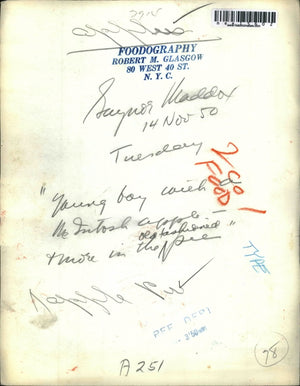 apples
FOODOGRAPHY
ROBERT M. GLASGOW
80 WEST 40 ST.
N. Y. C.
Gaynor Maddox
14 Nov 50
Tuesday
FOOD
"Young boy with a
McIntosh apple -
old fashioned"
& more in the pie
apple pie
TYPE
A251
98